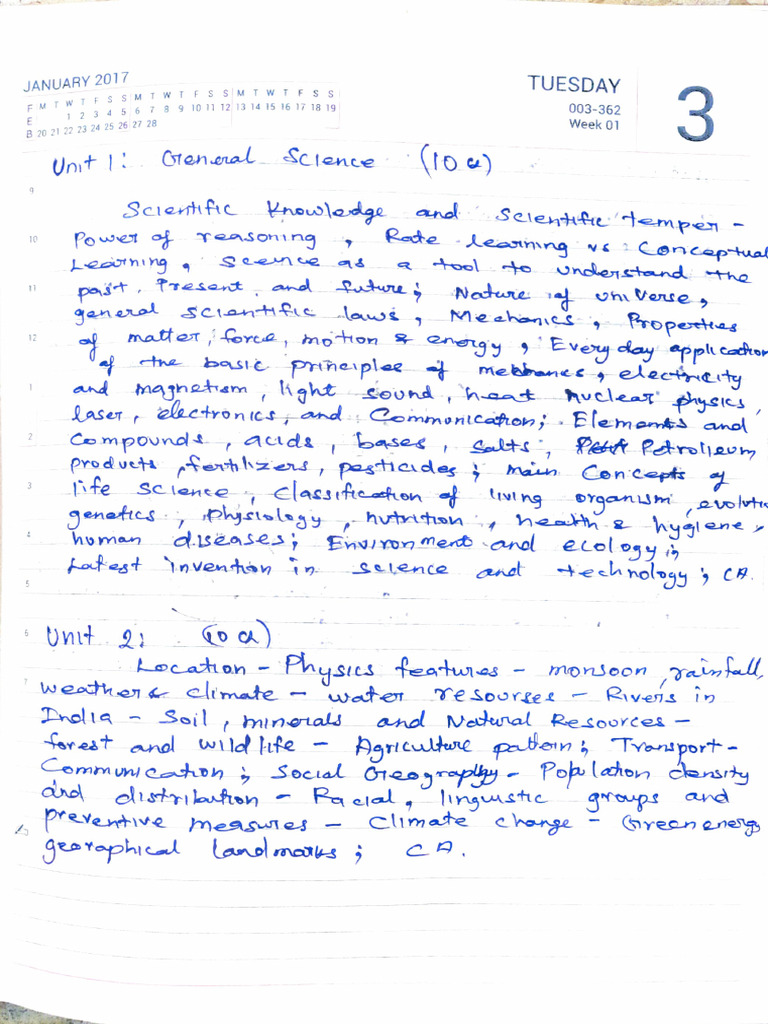 JANUARY 2017
TUESDAY
3
003-362
Week 01
F M T W T F S S M T W T F S S M T W T F S S
E 1 2 3 4 5 6 7 8 9 10 11 12 13 14 15 16 17 18 19
B 20 21 22 23 24 25 26 27 28
Unit 1: General Science (10 Q)
9
Scientific Knowledge and Scientific temper -
10 Power of reasoning, Rate learning vs Conceptual
Learning, Science as a tool to understand the
11 past, Present and future; Nature of universe,
general scientific laws, Mechanics, Properties
12 of matter, force, motion & energy, Everyday application
of the basic principles of mechanics, electricity
1 and magnetism, light sound, heat nuclear physics,
laser, electronics, and Communication; Elements and
2 Compounds, acids, bases, salts, Petrolleum
products, fertilizers, pesticides; main Concepts of
3 life science, Classification of living organism, evolutio
genetics, physiology, nutrition, health & hygiene,
4 human diseases; Environment and ecology;
Latest invention in science and technology; CA.
5
6 Unit 2: (10 Q)
Location - Physics features - monsoon, rainfall,
7 weather & climate - water resourses - Rivers in
India - Soil, minerals and Natural Resources -
forest and wildlife - Agriculture pattern; Transport -
Communication; Social Geography - Population density
and distribution - Racial, linguistic groups and
preventive measures - Climate change - Green energy
geographical landmarks; CA.